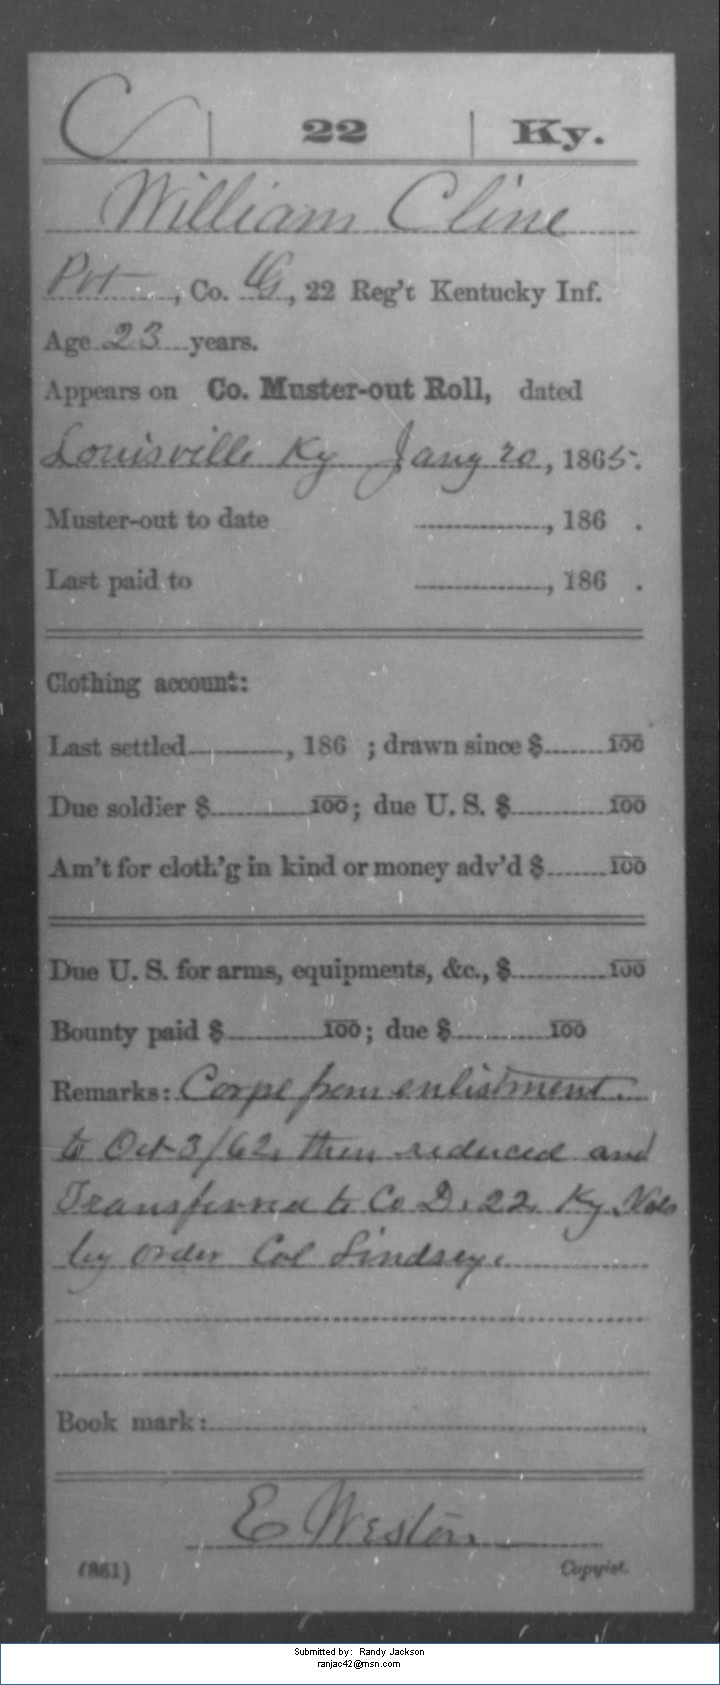 C | 22 | Ky.
William Cline
Pvt, Co. G, 22 Reg't Kentucky Inf.
Age 23 years.
Appears on Co. Muster-out Roll, dated
Louisville Ky Jany 20, 1865.
Muster-out to date , 186 .
Last paid to , 186 .
Clothing account:
Last settled , 186 ; drawn since $ 100
Due soldier $ 100; due U. S. $ 100
Am't for cloth'g in kind or money adv'd $ 100
Due U. S. for arms, equipments, &c., $ 100
Bounty paid $ 100; due $ 100
Remarks: Corpl from enlistment
to Oct 3/62, then reduced and
Transferred to Co D. 22 Ky. Vols
by order Col Lindsey.
Book mark:
E Weston
(861) Copyist.
Submitted by: Randy Jackson
ranjac42@msn.com